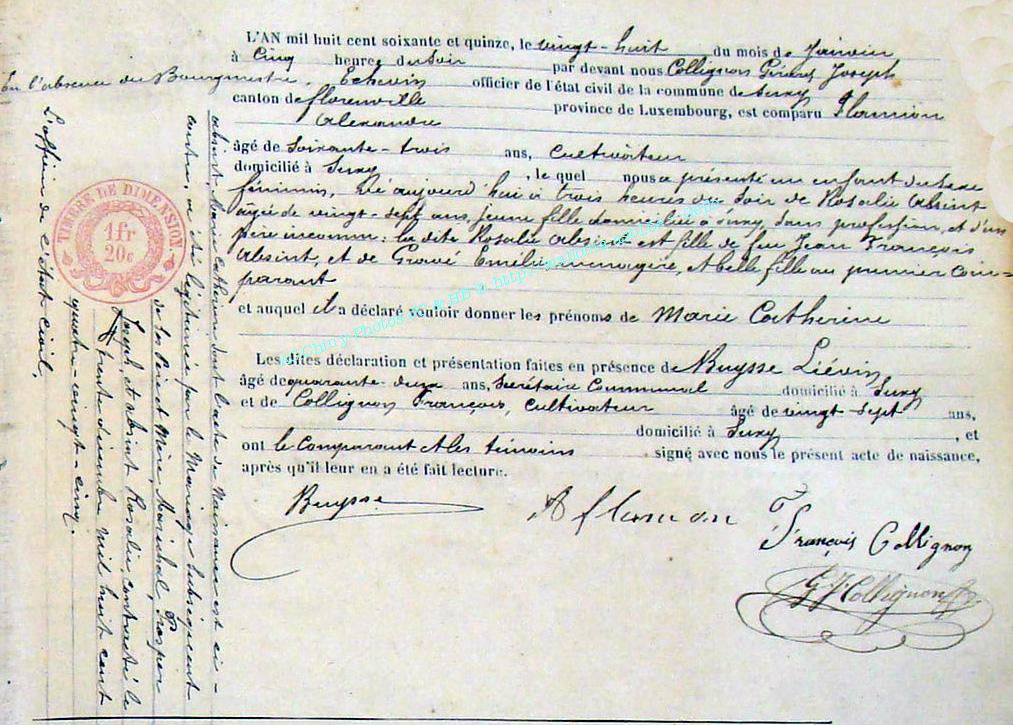 L'AN mil huit cent soixante et quinze, le vingt-huit du mois de Janvier
à Cinq heures du Soir par devant nous Collignon Gérard Joseph
En l'absence du Bourgmestre, Echevin officier de l'état civil de la commune de Suxy
canton de florenville province de Luxembourg, est comparu Flamion
Alexandre
âgé de Soixante-trois ans, Cultivateur
domicilié à Suxy , le quel nous a présenté un enfant du Sexe
féminin, né aujourd'hui à trois heures du Soir de Rosalie Absint
âgée de vingt-sept ans, jeune fille domiciliée à Suxy, Sans profession, et d'un
père inconnu: la dite Rosalie Absint est fille de feu Jean François
Absint, et de Emélie ménagère, & belle fille au premier Com-
parant
et auquel il a déclaré vouloir donner les prénoms de Marie Catherine
Les dites déclaration et présentation faites en présence de Buysse Liévin
âgé de quarante-deux ans, Secrétaire Communal domicilié à Suxy
et de Collignon François, Cultivateur âgé de vingt-sept ans,
domicilié à Suxy , et
ont le Comparant & les témoins signé avec nous le présent acte de naissance,
après qu'il leur en a été fait lecture.
Buysse
A flamion
François Collignon
G J Collignon
Absint, Marie Catherine dont l'acte de Naissance est ci-
contre, a été légitimée par le Mariage Subséquent
de Ses Père et Mère, Maréchal, Prosper
Joseph, et Absint Rosalie, contracté le
trente décembre mil huit cent
quatre-vingt-cinq.
L'officier de l'état civil,
TIMBRE DE DIMENSION
1 fr
20c